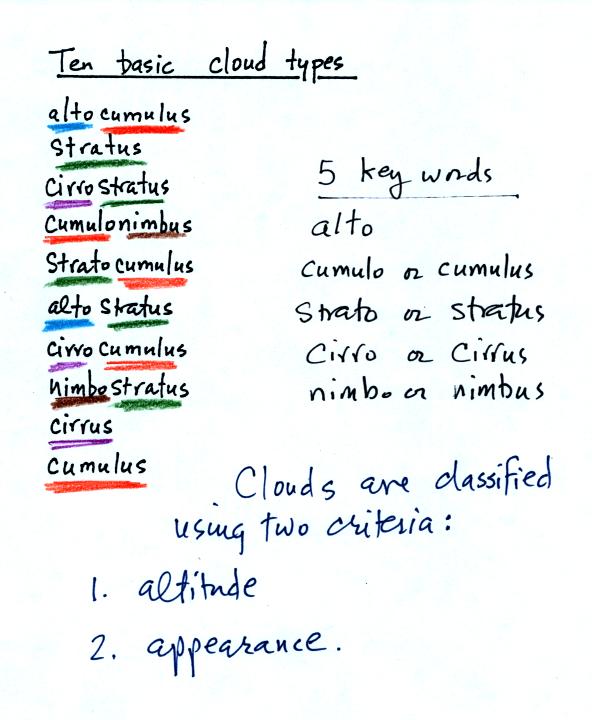 Ten basic cloud types
alto cumulus
Stratus
Cirro stratus
Cumulonimbus
Strato cumulus
alto Stratus
cirro Cumulus
nimbo Stratus
cirrus
Cumulus
5 key words
alto
Cumulo or cumulus
Strato or stratus
Cirro or Cirrus
nimbo or nimbus
Clouds are classified
using two criteria:
1. altitude
2. appearance.